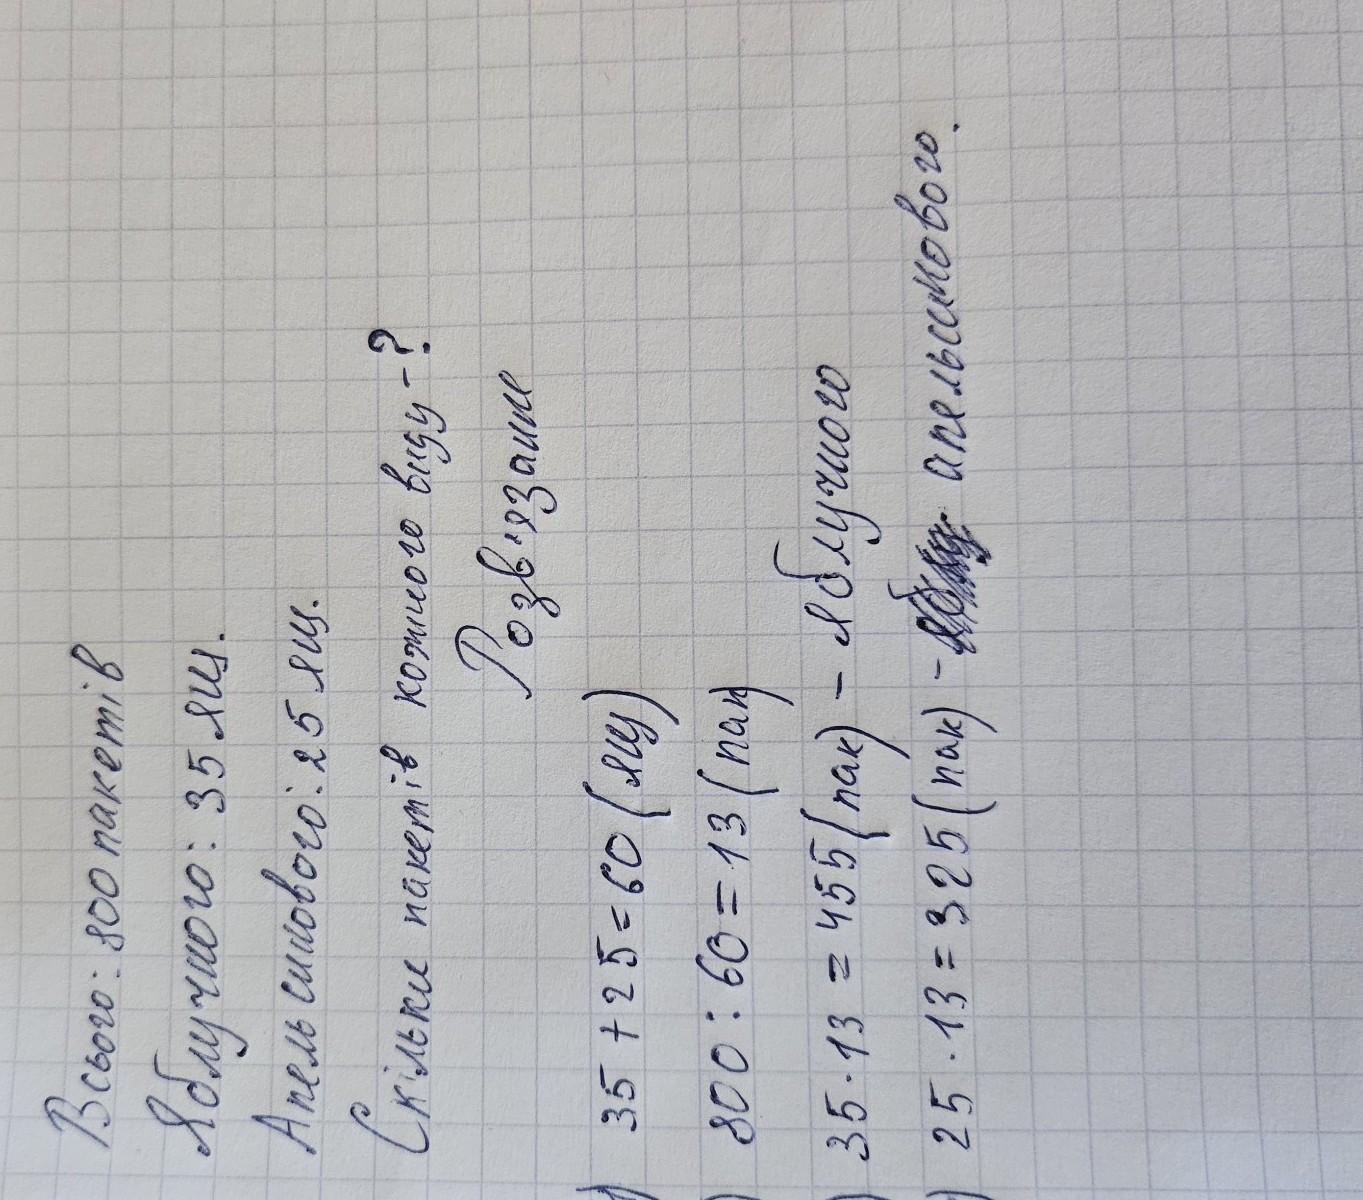 Всього: 800 пакетів
Яблучного: 35 ящ.
Апельсинового: 25 ящ.
Скільки пакетів кожного виду - ?
Розв'язание
) 35 + 25 = 60 (ящ)
) 800 : 60 = 13 (пак)
) 35 · 13 = 455 (пак) - яблучного
) 25 · 13 = 325 (пак) - апельсинового.